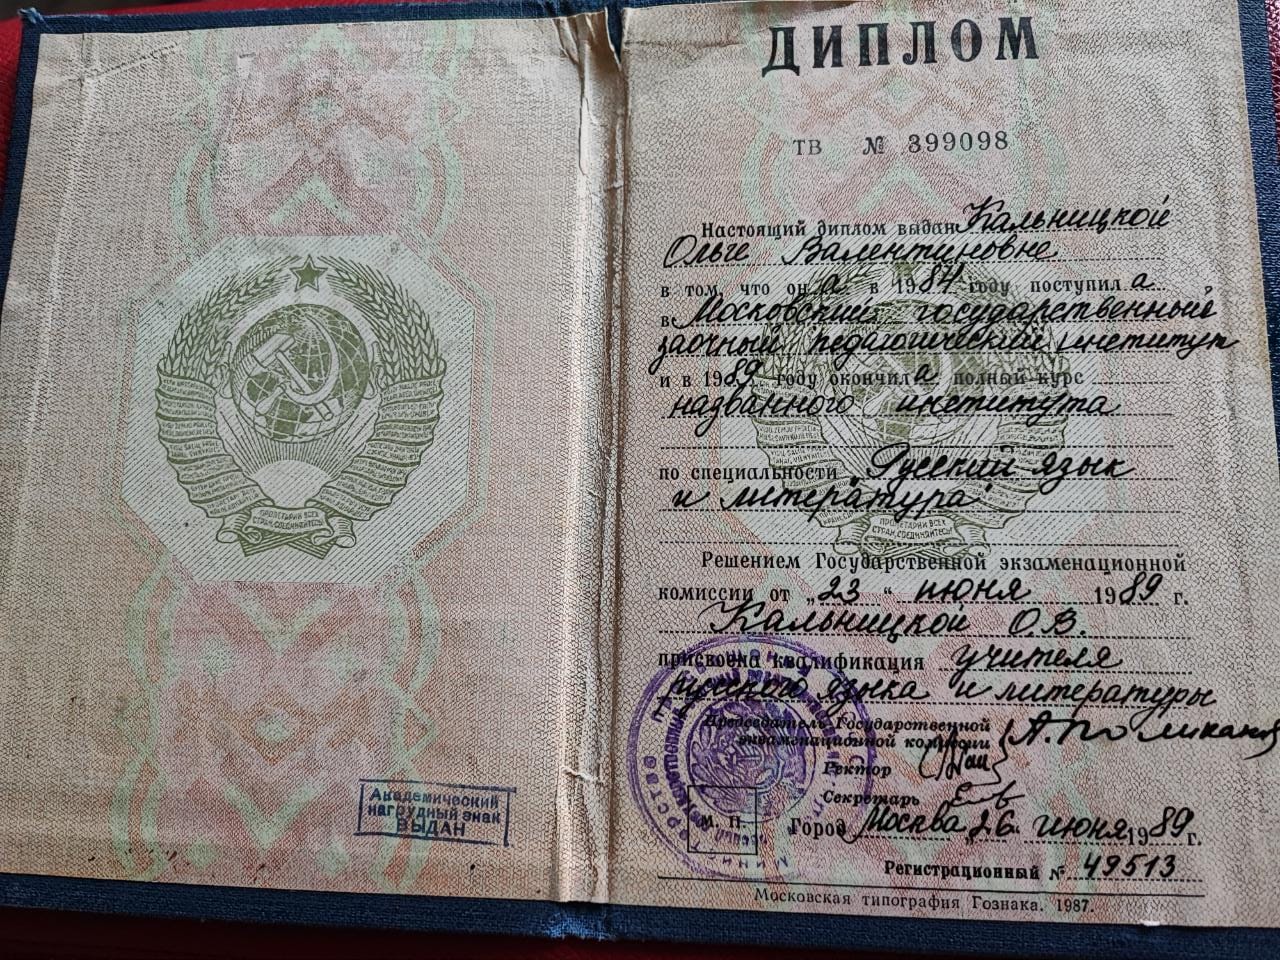 ПРОЛЕТАРИИ ВСЕХ
СТРАН, СОЕДИНЯЙТЕСЬ!
Академический
нагрудный знак
ВЫДАН
ДИПЛОМ
ТВ № 399098
Настоящий диплом выдан Кальницкой
Ольге Валентиновне
в том, что он а в 1984 году поступил а
в Московский государственный
заочный педагогический институт
и в 1989 году окончил а полный курс
названного института
по специальности „Русский язык
и литература"
ПРОЛЕТАРИИ ВСЕХ
СТРАН, СОЕДИНЯЙТЕСЬ!
Решением Государственной экзаменационной
комиссии от „23" июня 1989 г.
Кальницкой О.В.
присвоена квалификация учителя
русского языка и литературы
Председатель Государственной
экзаменационной комиссии
Ректор
Секретарь
М. П.
Город Москва „26" июня 1989 г.
Регистрационный № 49513
Московская типография Гознака. 1987.